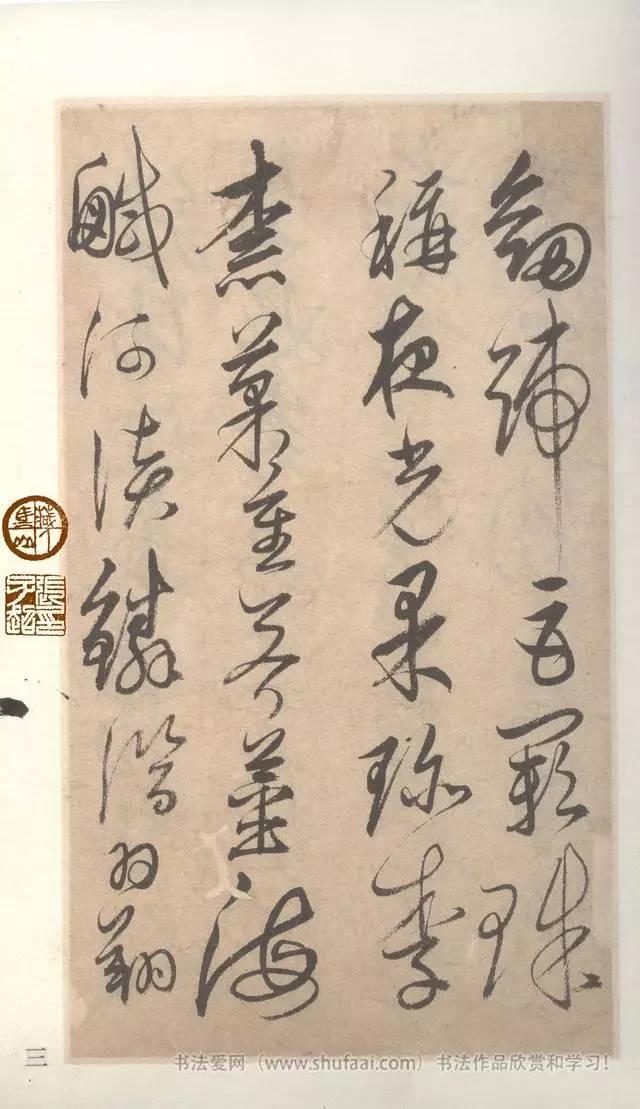 劍號巨闕珠
稱夜光果珍李
柰菜重芥薑海
鹹河淡鱗潛羽翔
三
书法爱网（www.shufaai.com）书法作品欣赏和学习！